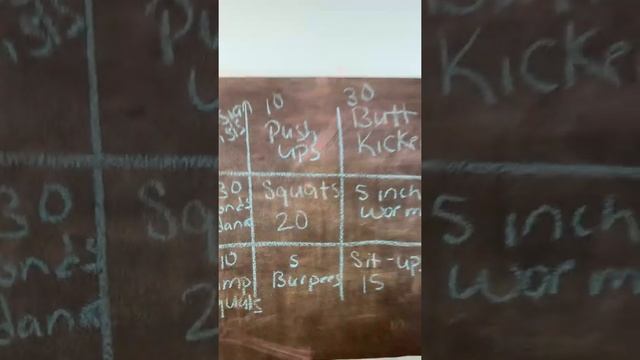 10
Push
ups
30
Butt
Kicke
30
onds
Squats
20
5 inch
worm
10
mp
quats
5
Burpees
Sit-up
15